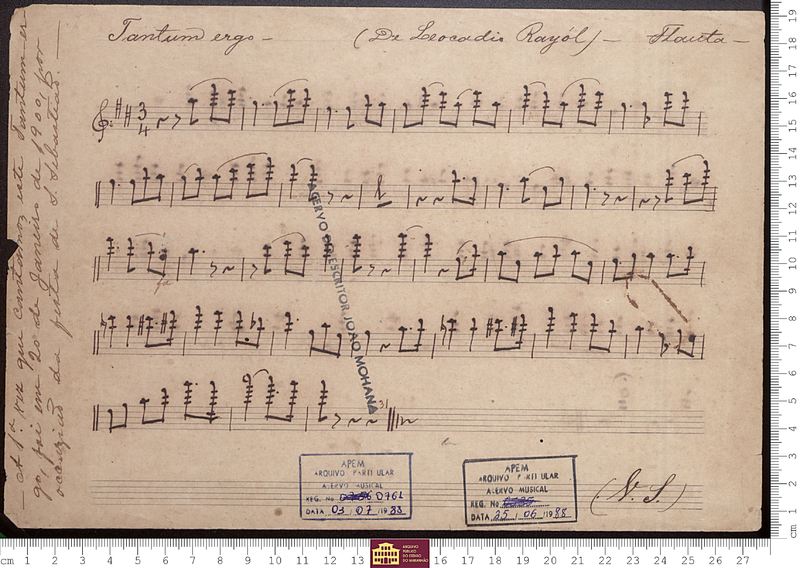 Tantum ergo — (De Leocadio Rayól) — Flauta —
— A 1ª vez que cantámos este Tantum er-
go, foi em 20 de Janeiro de 1909, por
occazião da festa de S. Sebastião. —
3
4
ACERVO DO ESCRITOR JOÃO MOHANA
fa
31
APEM
ARQUIVO PARTICULAR
ACERVO MUSICAL
REG. No 0761
DATA 03 / 07 / 19 88
APEM
ARQUIVO PARTICULAR
ACERVO MUSICAL
REG. No
DATA 25 / 06 / 19 88
(V. S.)
cm 1 2 3 4 5 6 7 8 9 10 11 12 13 16 17 18 19 20 21 22 23 24 25 26 27
cm 1 2 3 4 5 6 7 8 9 10 11 12 13 14 15 16 17 18 19